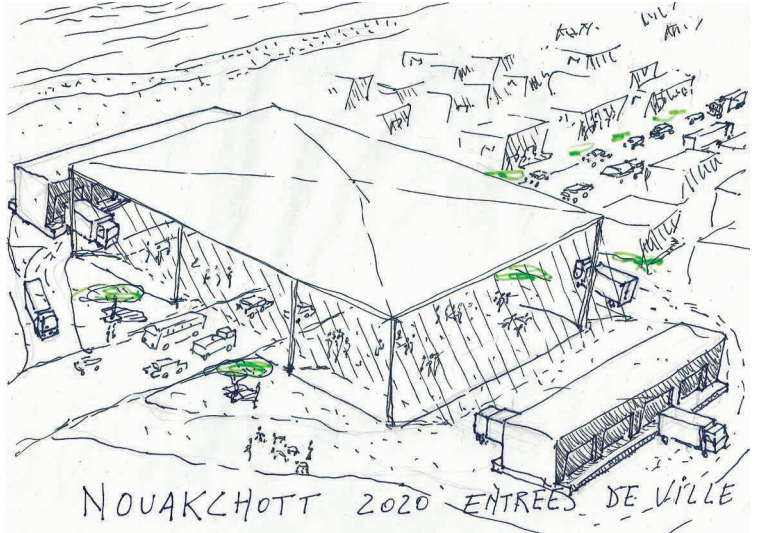 NOUAKCHOTT 2020 ENTREES DE VILLE